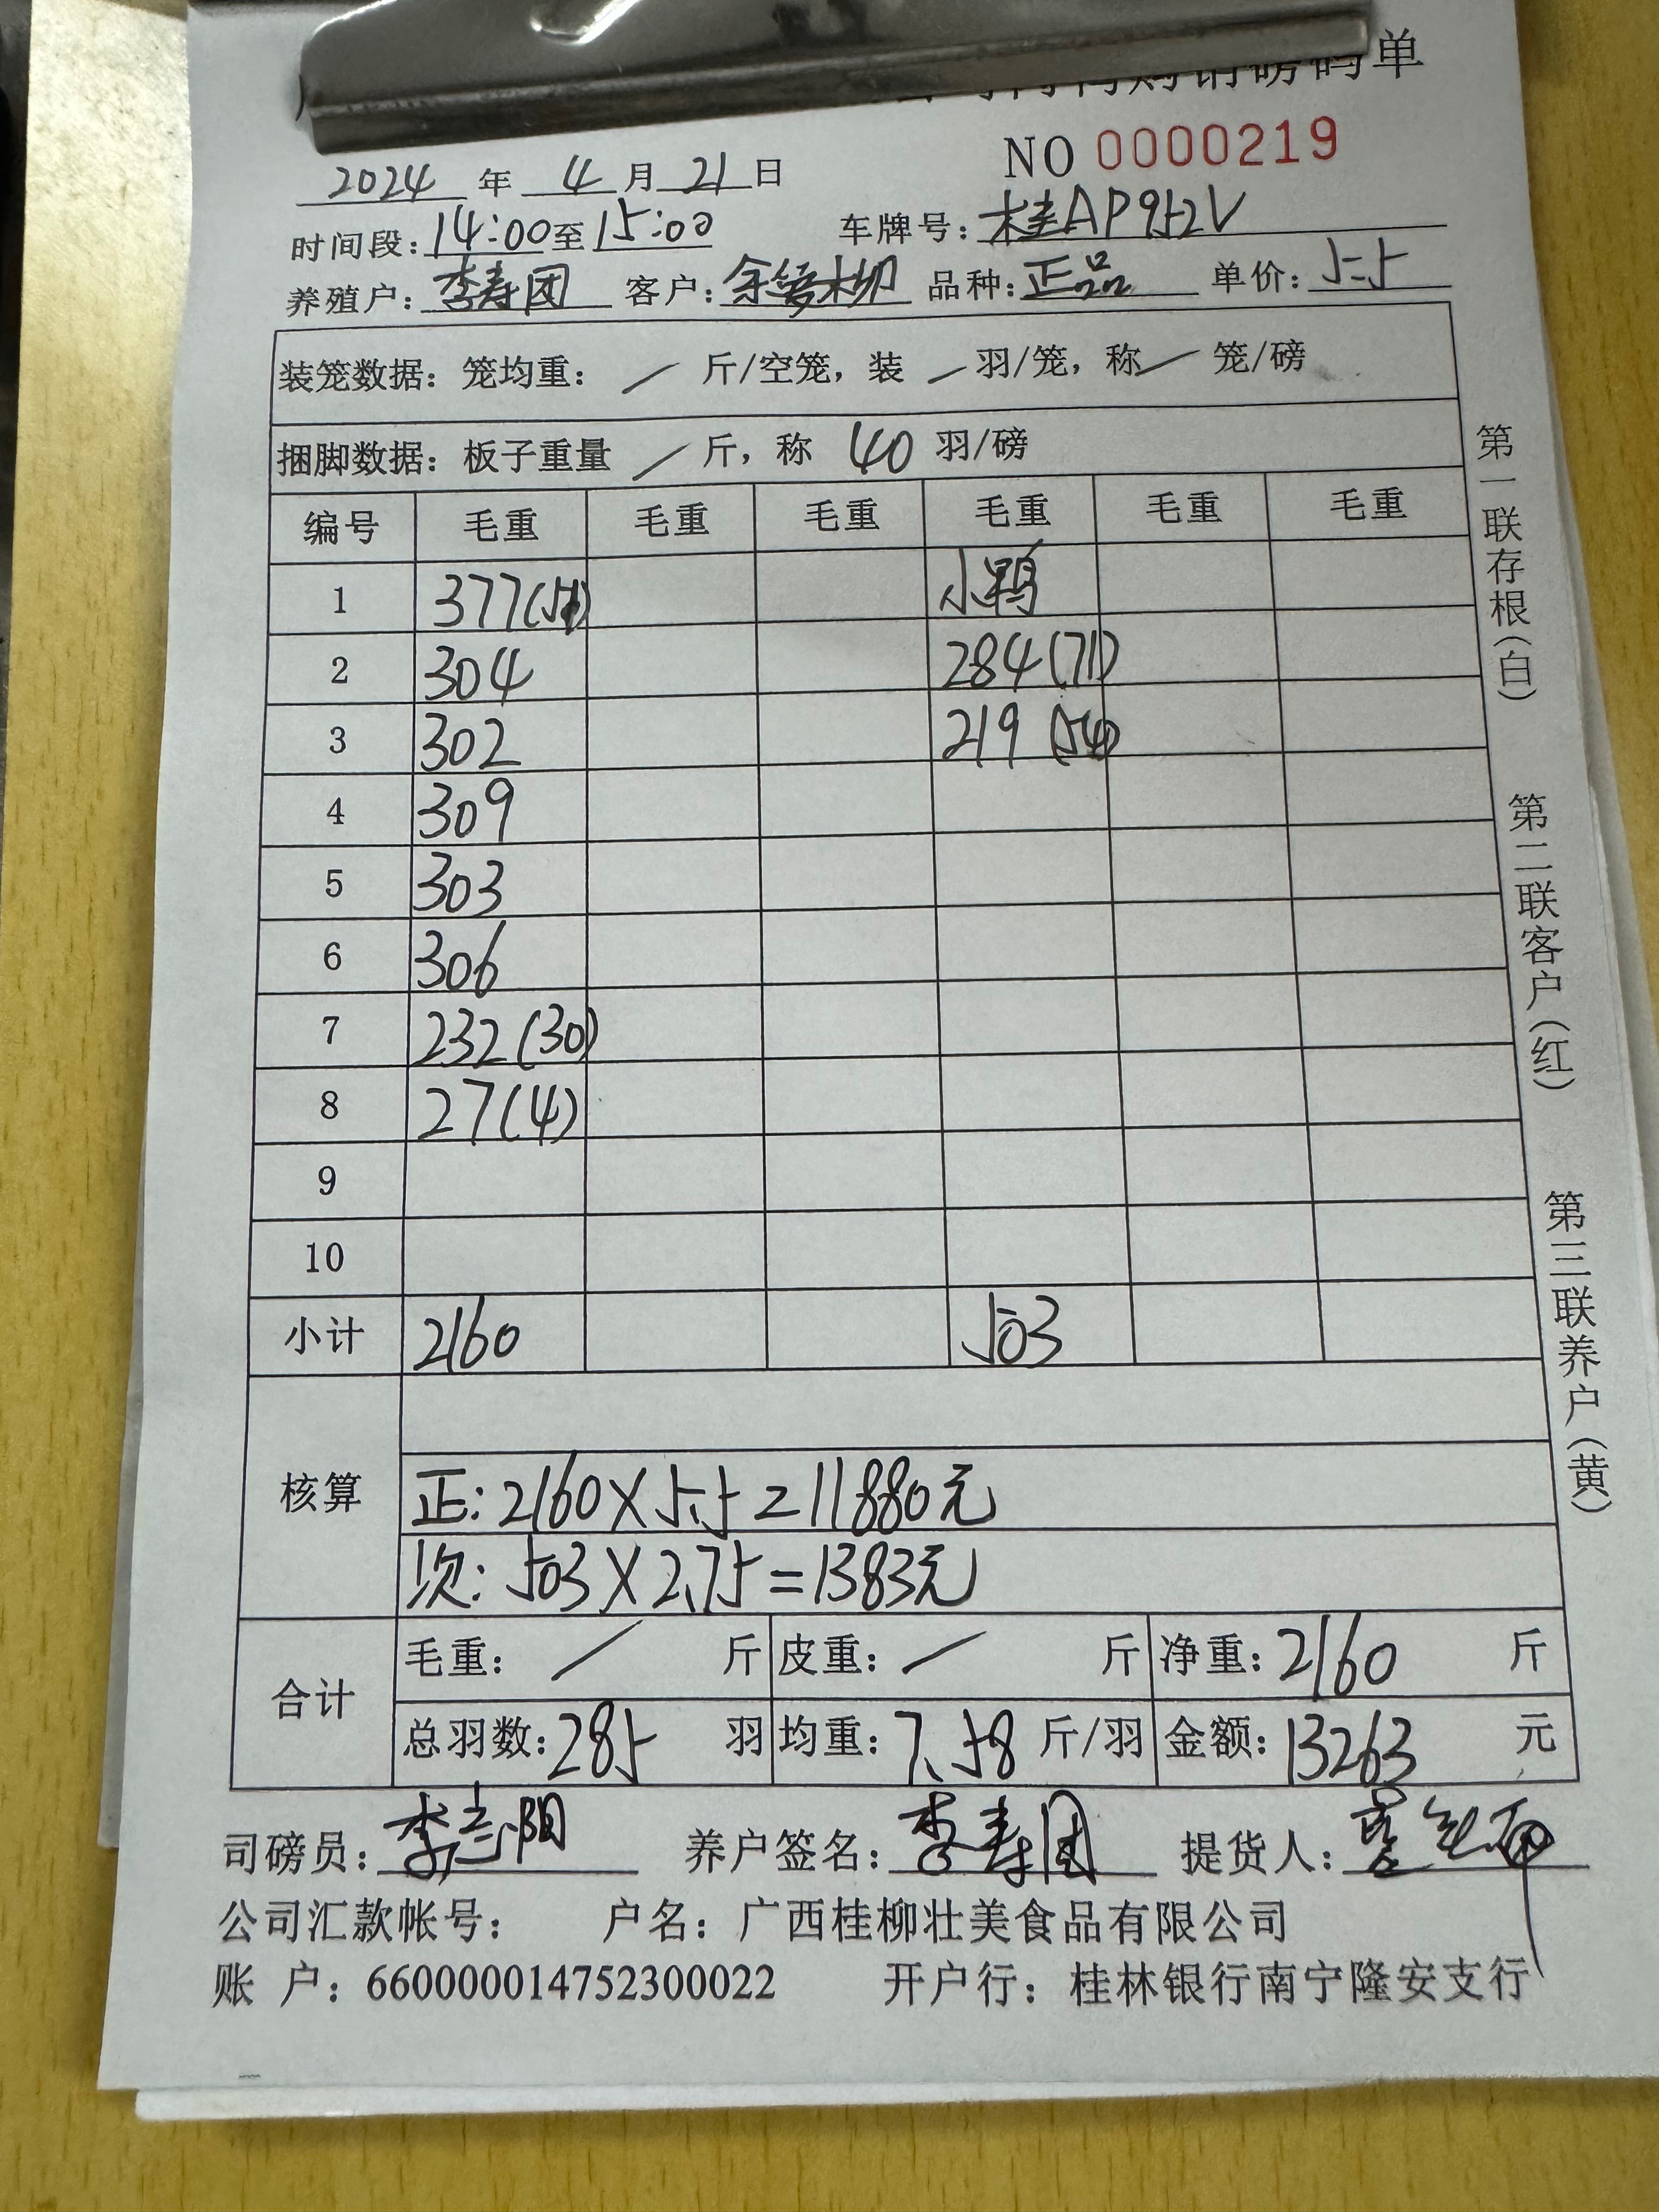 购销磅码单
NO 0000219
2024 年 4 月 21 日
时间段: 14:00 至 15:00 车牌号: 桂AP952V
养殖户: 李寿团 客户: 柳 品种: 正品 单价: 5.5
装笼数据: 笼均重: / 斤/空笼, 装 / 羽/笼, 称 / 笼/磅
捆脚数据: 板子重量 / 斤, 称 40 羽/磅
编号 毛重 毛重 毛重 毛重 毛重 毛重
1 377(51) 小鸭
2 304 284(71)
3 302 219 (54)
4 309
5 303
6 306
7 232(30)
8 27(4)
9
10
小计 2160 503
核算
正: 2160×5.5=11880元
次: 503×2.75=1383元
合计
毛重: / 斤 皮重: / 斤 净重: 2160 斤
总羽数: 285 羽 均重: 7.58 斤/羽 金额: 13263 元
司磅员: 李志阳 养户签名: 李寿团 提货人:
公司汇款帐号: 户名: 广西桂柳壮美食品有限公司
账 户: 660000014752300022 开户行: 桂林银行南宁隆安支行
第一联存根(白)
第二联客户(红)
第三联养户(黄)